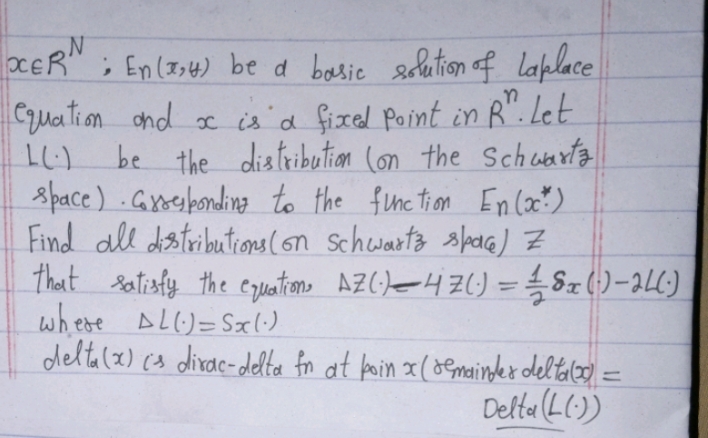 x∈R^N ; En(x,y) be a basic solution of Laplace
equation and x is a fixed point in R^n. Let
L(·) be the distribution (on the Schwartz
space). Corresponding to the function En(x,·)
Find all distributions (on schwartz space) Z
that satisfy the equations ΔZ(·)-4Z(·) = 1/2 δx(·)-2L(·)
where ΔL(·)=Sx(·)
delta(x) is dirac-delta fn at poin x (remainder delta(x) =
Delta(L(·))